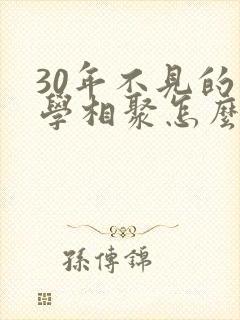 30年不見的
學相聚怎麼
孫傳錦